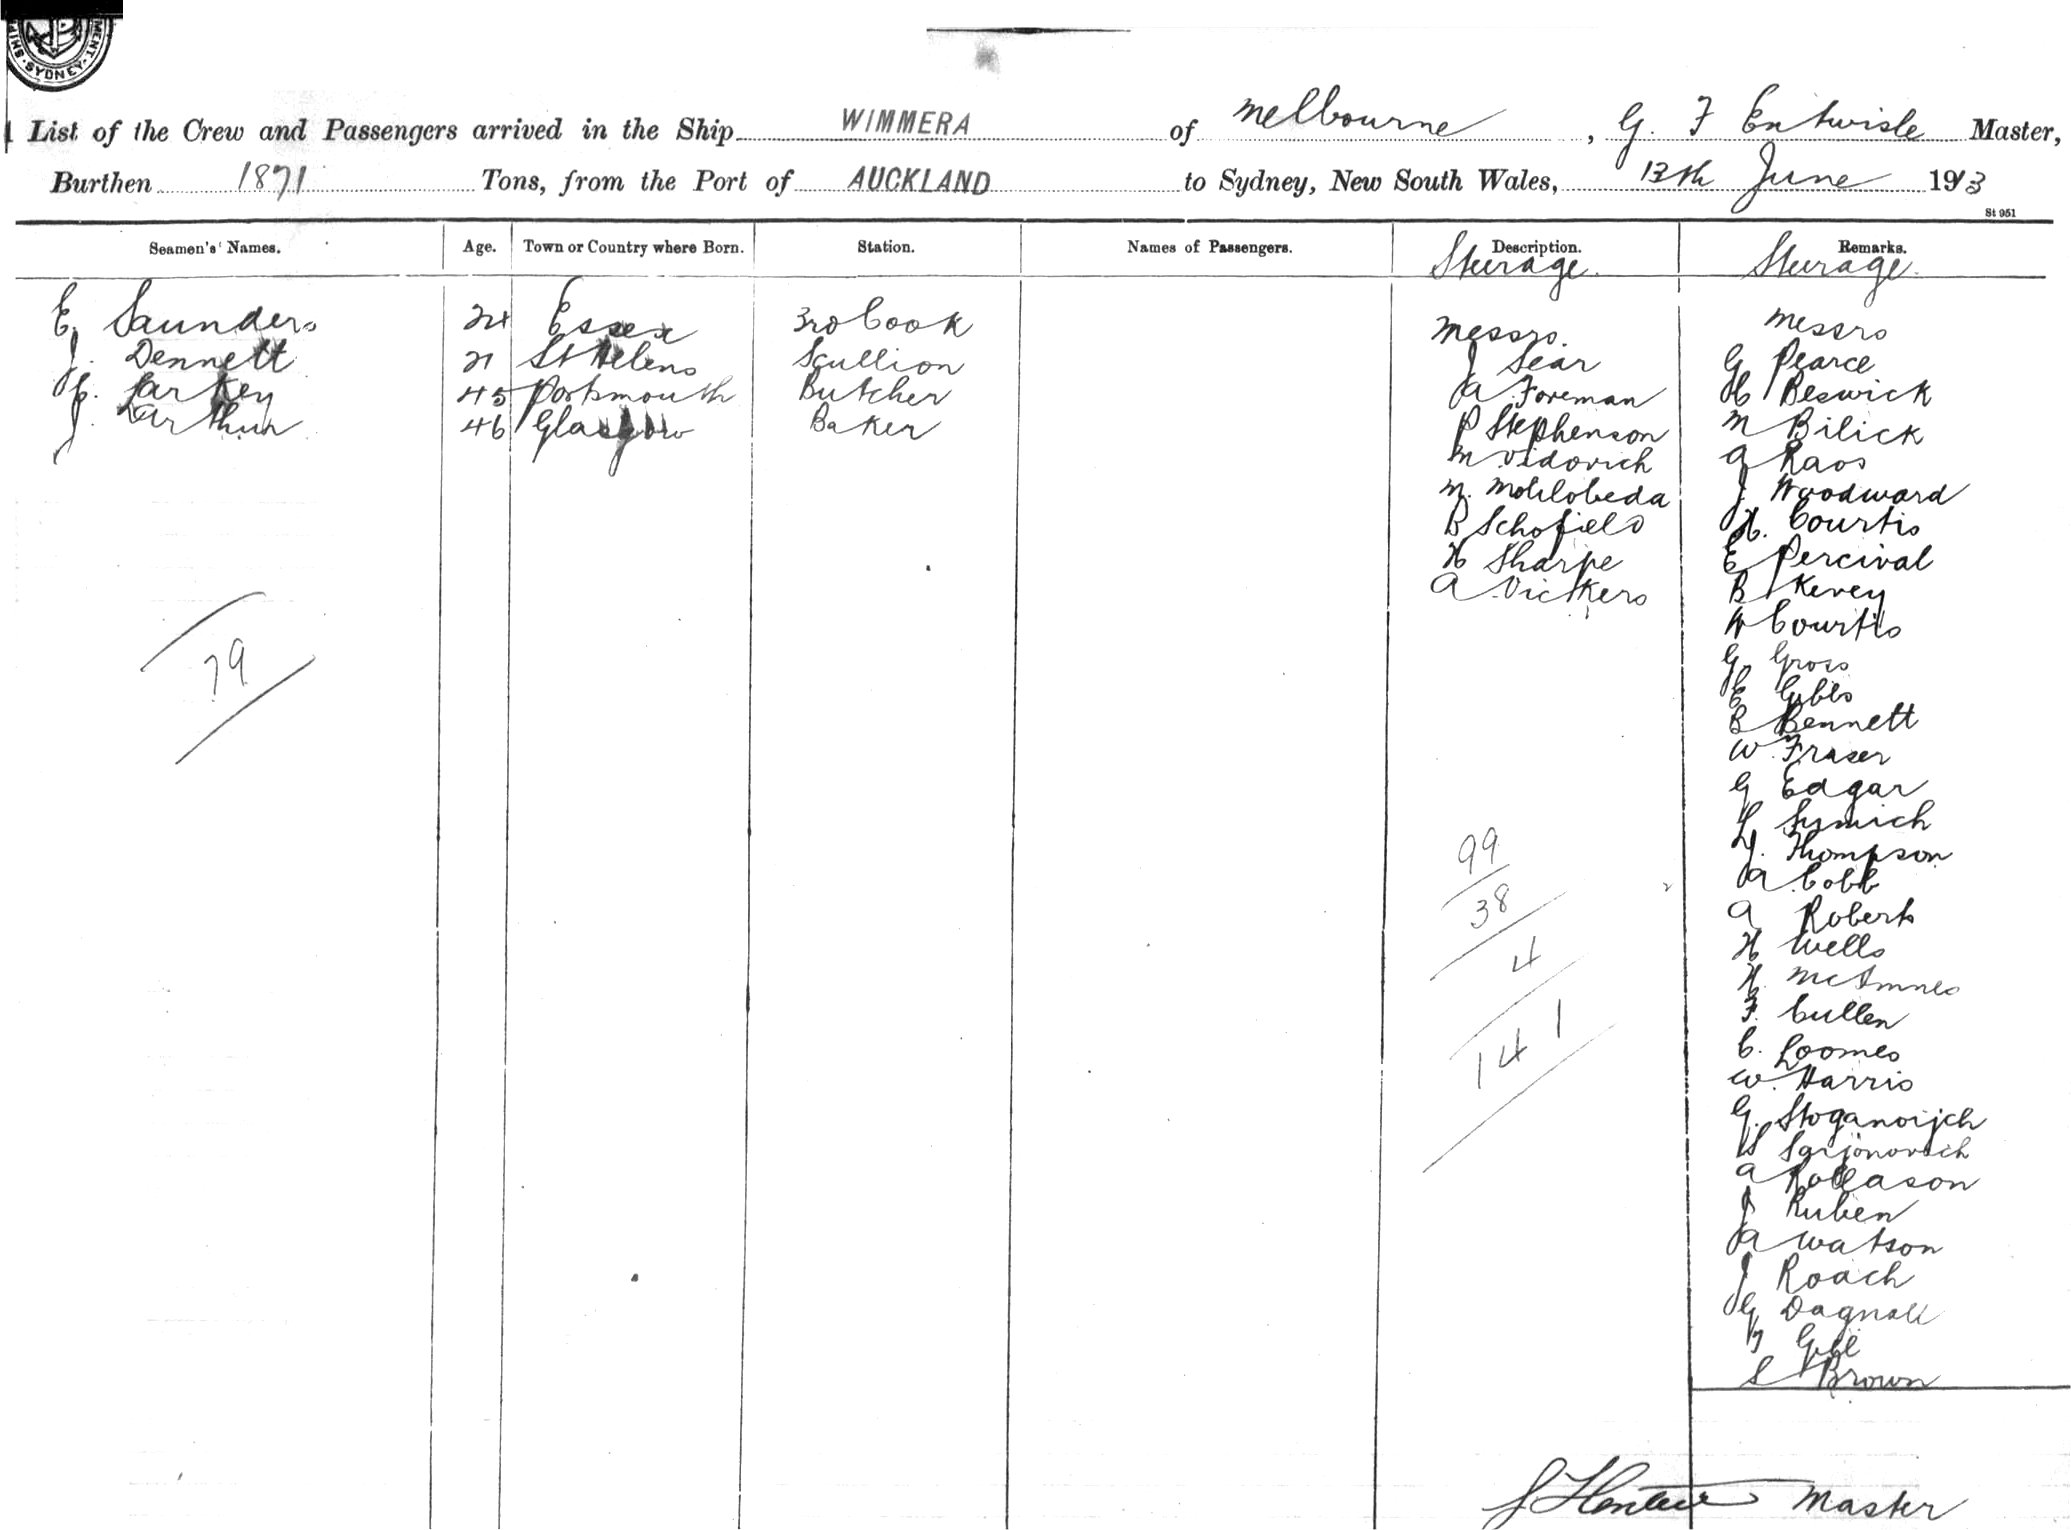 SYDNEY
List of the Crew and Passengers arrived in the Ship WIMMERA of Melbourne, G. F Entwisle Master,
Burthen 1871 Tons, from the Port of AUCKLAND to Sydney, New South Wales, 13th June 1913
St 951
Seamen's Names. Age. Town or Country where Born. Station. Names of Passengers. Description. Remarks.
Steerage. Steerage.
E. Saunders 24 Essex 3rd Cook
J. Dennett 21 St Helens Scullion
Larkey 45 Portsmouth Butcher
J. Arthur 46 Glasgow Baker
79
Messrs.
J Sear
A Foreman
P Stephenson
M Vidovich
M.
B Schofield
H Sharpe
A Vickers
99
38
4
141
Messrs
G Pearce
H Beswick
M Bilick
A Raos
J Woodward
H. Courtis
E Percival
B Kevey
W Courtis
G Gross
E Gibbs
B Bennett
W Fraser
G Edgar
L Symich
J. Thompson
A Cobb
A Roberts
H Wells
H. McAmnes
F. Cullen
C. Loomes
W. Harris
G. Stoganoijch
S
A Rollason
J Ruben
A Watson
J Roach
G Dagnall
Gill
S Brown
Master